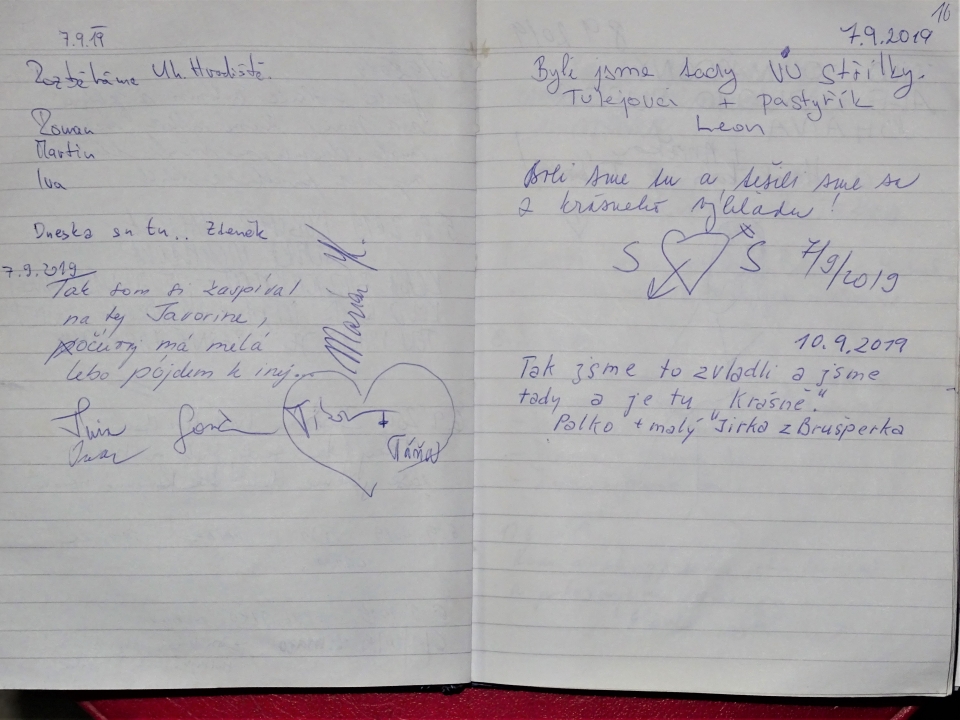 7.9.19
Rozběháme Uh. Hradiště.
Roman
Martin
Iva
Dneska su tu.. Zdeněk
7.9.2019
Tak som si zaspíval
na tej Javorine,
počúvaj má milá
lebo pójdem k inej...
Marián K.
Ivan
Tibor
+
Táňa
16
7.9.2019
Byli jsme tady VÚ Střílky.
Tulejovci + pastyřík
Leon
Boli sme tu a tešili sme sa
z krásneho výhľadu!
S Š 7/9/2019
10.9.2019
Tak jsme to zvládli a jsme
tady a je tu "Krásně."
Palko + malý Jirka z Brušperka